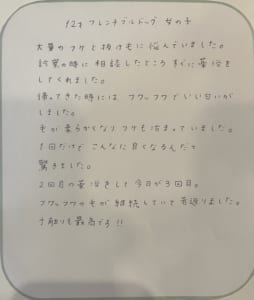 12才 フレンチブルドッグ 女の子
大量のフケと抜け毛に悩んでいました。
診察の時に相談したところ すぐに薬浴を
してくれました。
帰ってきた時には フワッフワでいい匂いが
しました。
毛が柔らかくなりフケも治まっていました。
1回だけで こんなに良くなるんだと
驚きました。
2回目の薬浴をして今日が3回目。
フワッフワの毛が継続していて若返りました。
手触りも最高です!!